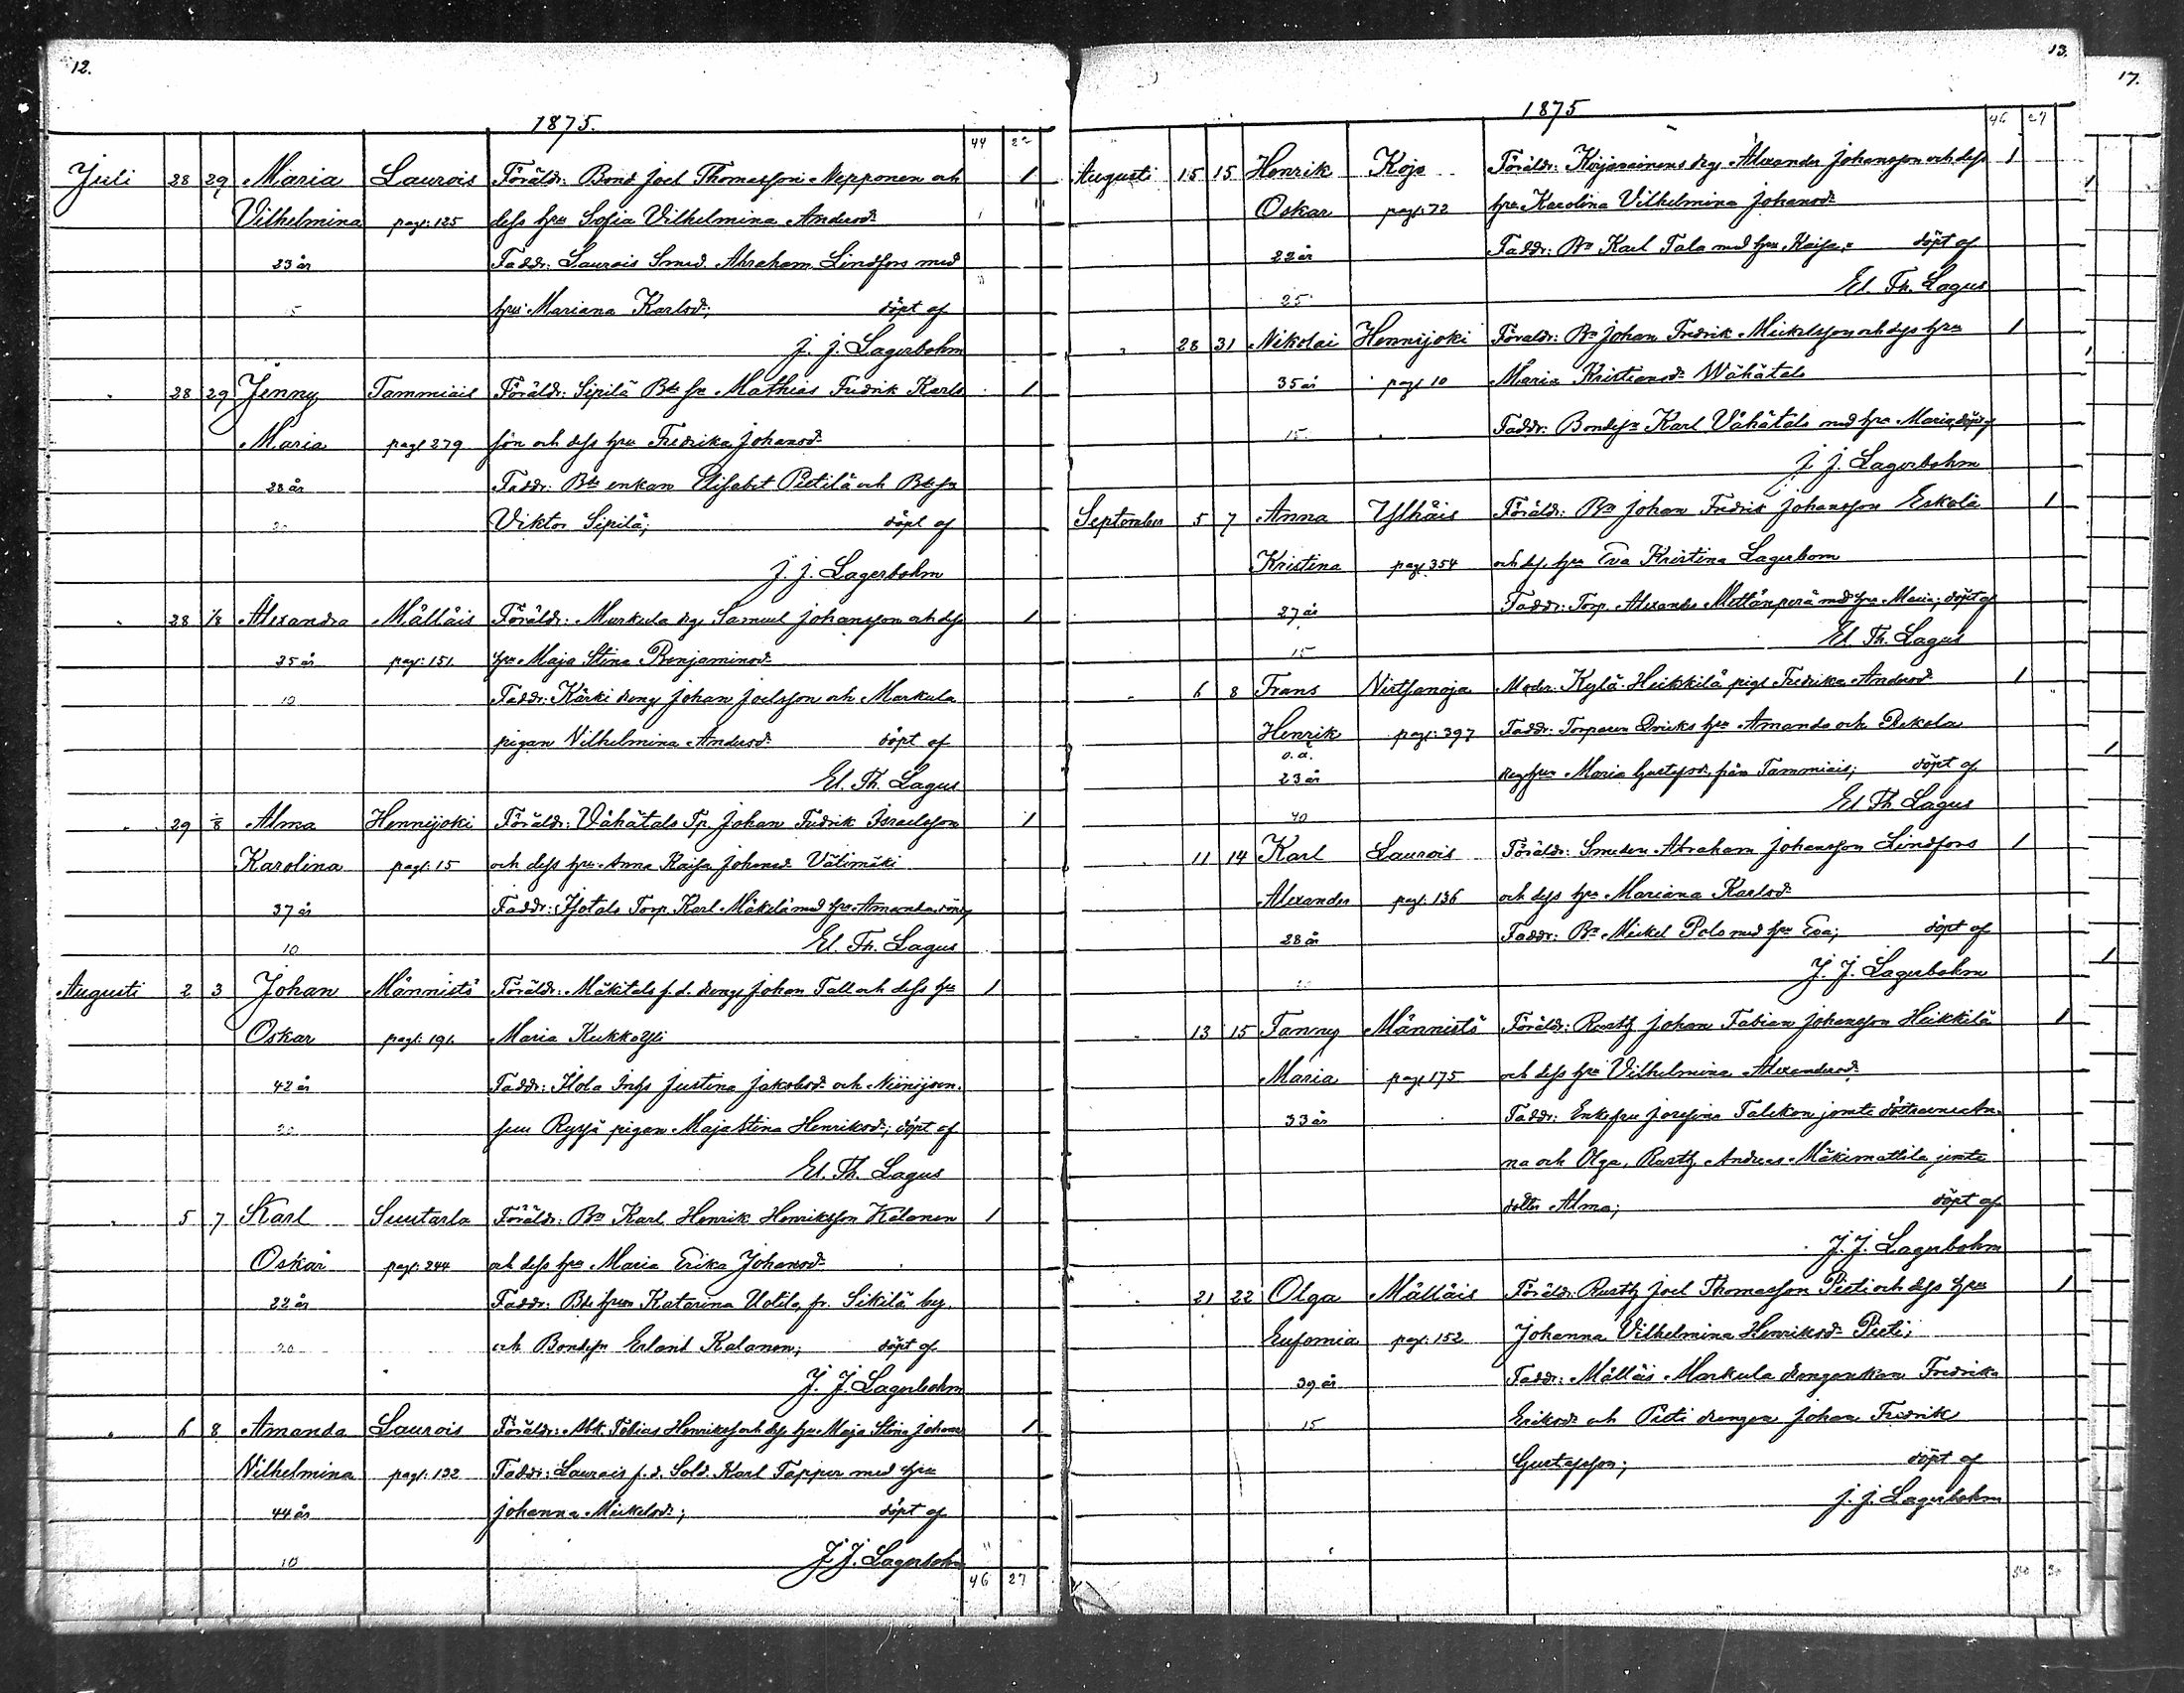 12.
1875.
44
Juli 28 29 Maria Laurois Föräldr: Bond Joel Thomasson Nepponen och 1
Vilhelmina pag: 125 dess hru Sofia Vilhelmina Andersd:
23 år Faddr: Laurois Smed. Abraham Lindfors med
hru Mariana Karlsd:; döpt af
J. J. Lagerbohm
28 29 Jenny Tammiais Föräldr: Sipilä Bde sn Mathias Fredrik Karls 1
Maria pag 279 son och dess hru Fredrika Johansd:
28 år Faddr: Bde enkan Elisabet Pietilä och Bdesn
20 Viktor Sipilä; döpt af
J. J. Lagerbohm
28 1/8 Alexandra Mälläis Föräldr: Markula drg Samuel Johansson och dess 1
35 år pag: 151. hru Maja Stina Benjaminsd:
10 Faddr: Kärki dreng Johan Joelsson och Markula
pigan Vilhelmina Andersd: döpt af
El. Th. Lagus
29 1/8 Alma Hennijoki Föräldr: Vähätalo Tp. Johan Fredrik Israelsson 1
Karolina pag: 15 och dess hru Anna Kaisa Johansd. Välimäki
37 år Faddr: Isotalo Torp. Karl Mäkilä med hru Amanda, döpt af
10 El. Th. Lagus
Augusti 2 3 Johan Männistö Föräldr: Mäkitalo f. d. dreng Johan Tall och dess hru 1
Oskar pag: 191. Maria Kukkoyli
42 år Faddr: Ilola Inhs Justina Jakobsd: och Niinijoen
20 suu Ryssä pigan Maja Stina Henriksd:; döpt af
El. Th. Lagus
5 7 Karl Suutarla Föräldr: Bn Karl Henrik Henriksson Kalanen 1
Oskar pag: 244 och dess hru Maria Erika Johansd:
22 år Faddr: Bde hrun Katarina Uotila fr. Sikilä by
20 och Bondesn Erland Kalanen; döpt af
J. J. Lagerbohm
6 8 Amanda Laurois Föräldr: Abk. Tobias Henriksson och dess hru Maja Stina Johansd 1
Vilhelmina pag: 132 Faddr: Laurois f. d. Sold. Karl Tapper med hru
44 år Johanna Mickelsd:; döpt af
10 J. J. Lagerbohm
46 27
13.
1875
46 27
Augusti 15 15 Henrik Kojo Föräldr: Kojovainens drg Alexander Johansson och dess 1
Oskar pag: 72 hru Karolina Vilhelmina Johansd:
22 år Faddr: Bn Karl Tala med hru Kaisa; döpt af
25 El. Th. Lagus
28 31 Nikolai Hennijoki Föräldr: Bn Johan Fredrik Mickelsson och dess hru 1
35 år pag 10 Maria Kristiansd: Wähätalo
15 Faddr: Bondesn Karl Vähätalo med hru Maria, döpt af
J. J. Lagerbohm
September 5 7 Anna Ylhäis Föräldr: Bn Johan Fredrik Johansson Eskola 1
Kristina pag 354 och dess hru Eva Kristina Lagerbom
27 år Faddr: Torp. Alexander Mettänperä med hru Maria; döpt af
15 El. Th. Lagus
6 8 Frans Virtsanoja Moder: Kylä-Heikkilä piga Fredrika Andersd: 1
Henrik pag: 397 Faddr: Torparen hru Amanda och Pekola
o. ä.
23 år drg hru Maria Gustafsd. från Tammiais; döpt af
40 El. Th. Lagus
11 14 Karl Laurois Föräldr: Smeden Abraham Johansson Lindfors 1
Alexander pag: 136 och dess hru Mariana Karlsd:
28 år Faddr: Bn Mickel Polo med hru Eva; döpt af
J. J. Lagerbohm
13 15 Fanny Männistö Föräldr: Rusth Johan Fabian Johansson Heikkilä 1
Maria pag 175 och dess hru Vilhelmina Alexandersd:
33 år Faddr: Enkefru Josefina Taleken jemte döttrarne An-
na och Olga, Rusth Andreas Mäkimattila jemte
dotter Alma; döpt af
J. J. Lagerbohm
21 22 Olga Mälläis Föräldr: Rusth Joel Thomasson Pieti och dess hru 1
Eufemia pag: 152 Johanna Vilhelmina Henriksd: Pieti;
39 år Faddr: Mälläis Markula drengenkan Fredrika
15 Eriksd: och Pieti drengen Johan Fredrik
Gustafsson; döpt af
J. J. Lagerbohm
17.